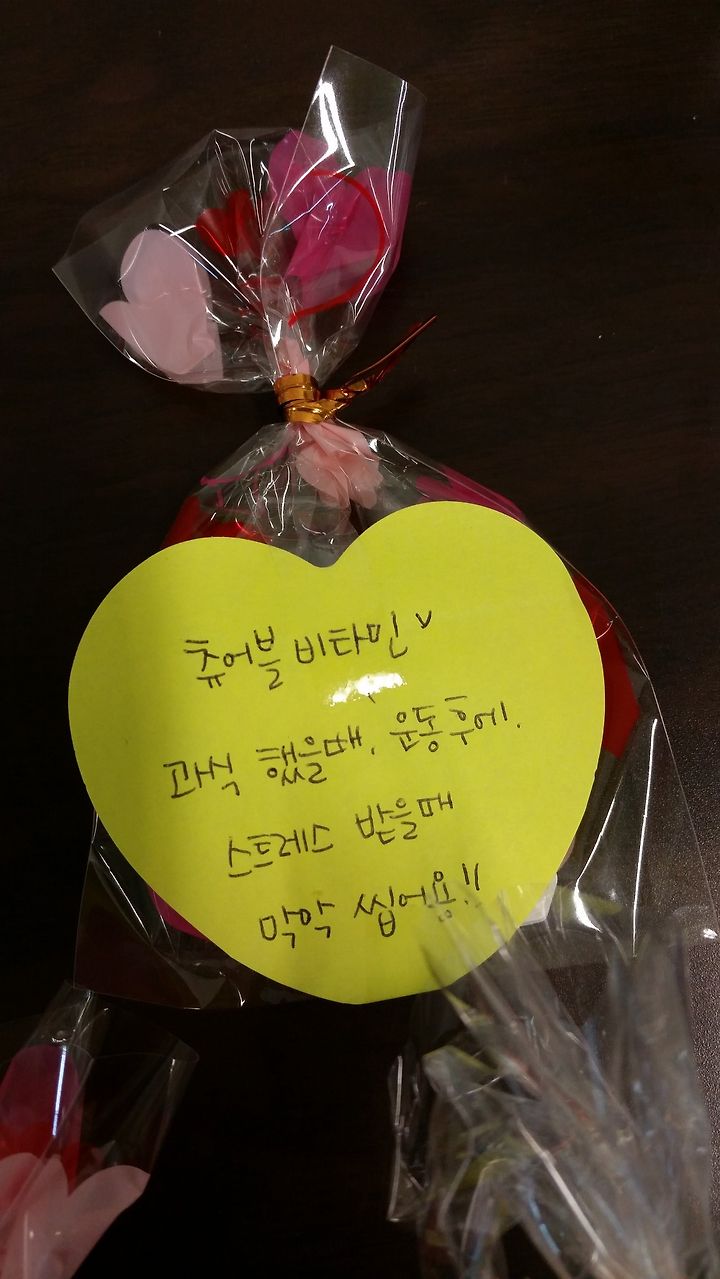 츄어블 비타민
과식 했을때, 운동후에.
스트레스 받을때
막악 씹어용!!